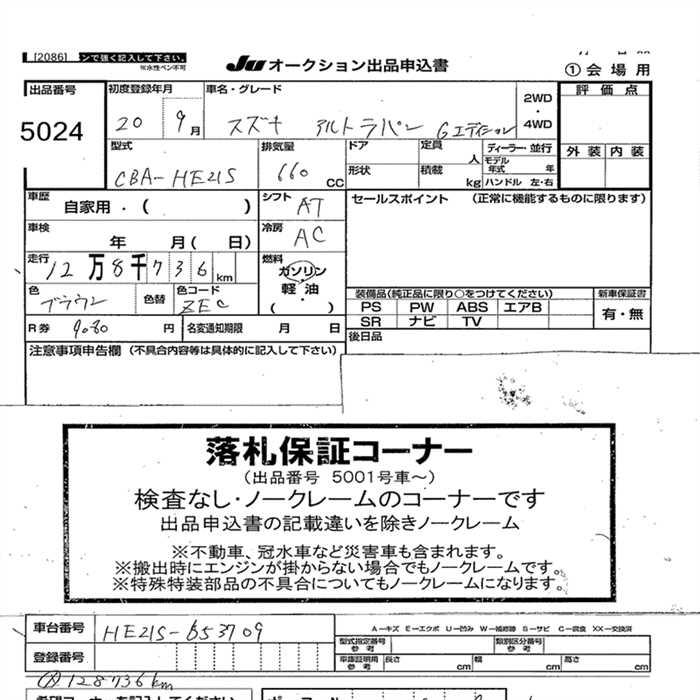 [2086] ンで強く記入して下さい。
※水性ペン不可
JU オークション出品申込書
①会場用
出品番号 5024
初度登録年月 20 9月
車名・グレード スズキ アルトラパン Gエディション
2WD・4WD
評価点
外装 内装
型式 CBA-HE21S
排気量 660 CC
ドア
形状
定員 人
積載 kg
ディーラー・並行
モデル年式 年
ハンドル 左・右
車歴 自家用・( )
シフト AT
セールスポイント (正常に機能するものに限ります)
車検 年 月( 日)
冷房 AC
走行 12万8千736km
燃料 ガソリン 軽油 ( ・ )
色 ブラウン 色替
色コード ZEC
装備品(純正品に限り○をつけてください)
PS PW ABS エアB
SR ナビ TV
新車保証書 有・無
R券 9080 円 名変通知期限 月 日
後日品
注意事項申告欄 (不具合内容等は具体的に記入して下さい)
落札保証コーナー
(出品番号 5001号車~)
検査なし・ノークレームのコーナーです
出品申込書の記載違いを除きノークレーム
※不動車、冠水車など災害車も含まれます。
※搬出時にエンジンが掛からない場合でもノークレームです。
※特殊特装部品の不具合についてもノークレームになります。
車台番号 HE21S-653709
A-キズ E-エクボ U-凹み W-補修跡 S-サビ C-腐食 XX-交換済
型式指定番号 参考
類別区分番号 参考
登録番号
車庫証明用 参考 長さ cm 幅 cm 高さ cm
128736km